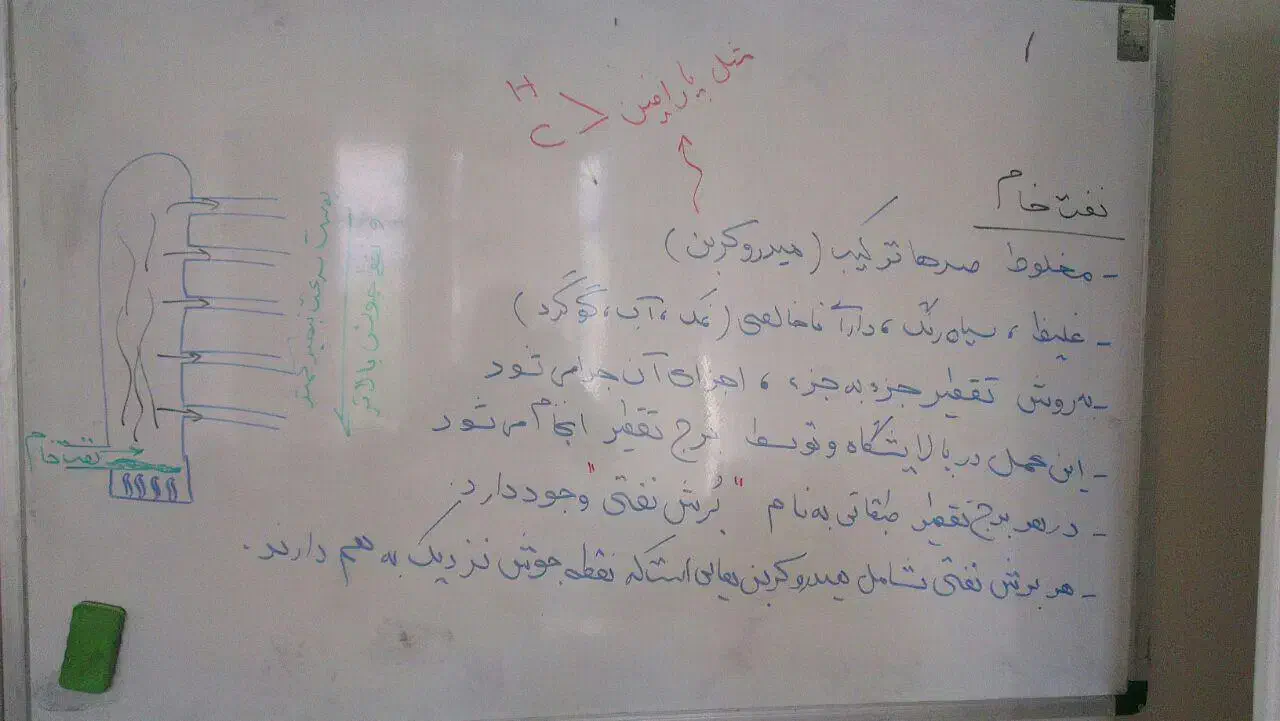 ۱
مثل پارافین < H C
نفت خام
- مخلوط صدها ترکیب (هیدروکربن)
- غلیظ، سیاه رنگ، دارای ناخالصی (نمک، آب، گوگرد)
- به روش تقطیر جزء به جزء، اجزای آن جدا می شود
- این عمل در پالایشگاه و توسط برج تقطیر انجام می شود
- در هر برج تقطیر طبقاتی به نام "بُرش نفتی" وجود دارد.
- هر برش نفتی شامل هیدروکربن هایی است که نقطه جوش نزدیک به هم دارند.
سرعت تبخیر کمتر
و نقطه جوش بالاتر
نفت خام